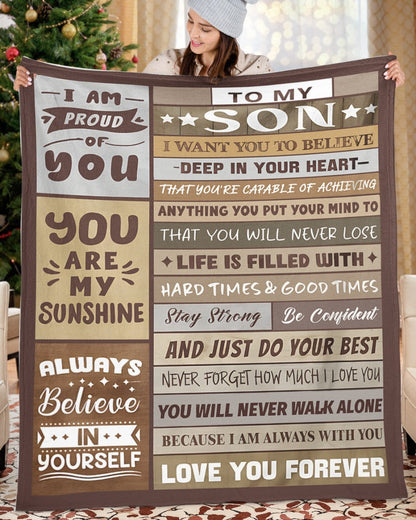 I AM
PROUD
OF
YOU
YOU
ARE
MY
SUNSHINE
ALWAYS
Believe
IN
YOURSELF
TO MY
SON
I WANT YOU TO BELIEVE
-DEEP IN YOUR HEART-
THAT YOU'RE CAPABLE OF ACHIEVING
ANYTHING YOU PUT YOUR MIND TO
THAT YOU WILL NEVER LOSE
LIFE IS FILLED WITH
HARD TIMES & GOOD TIMES
Stay Strong Be Confident
AND JUST DO YOUR BEST
NEVER FORGET HOW MUCH I LOVE YOU
YOU WILL NEVER WALK ALONE
BECAUSE I AM ALWAYS WITH YOU
LOVE YOU FOREVER